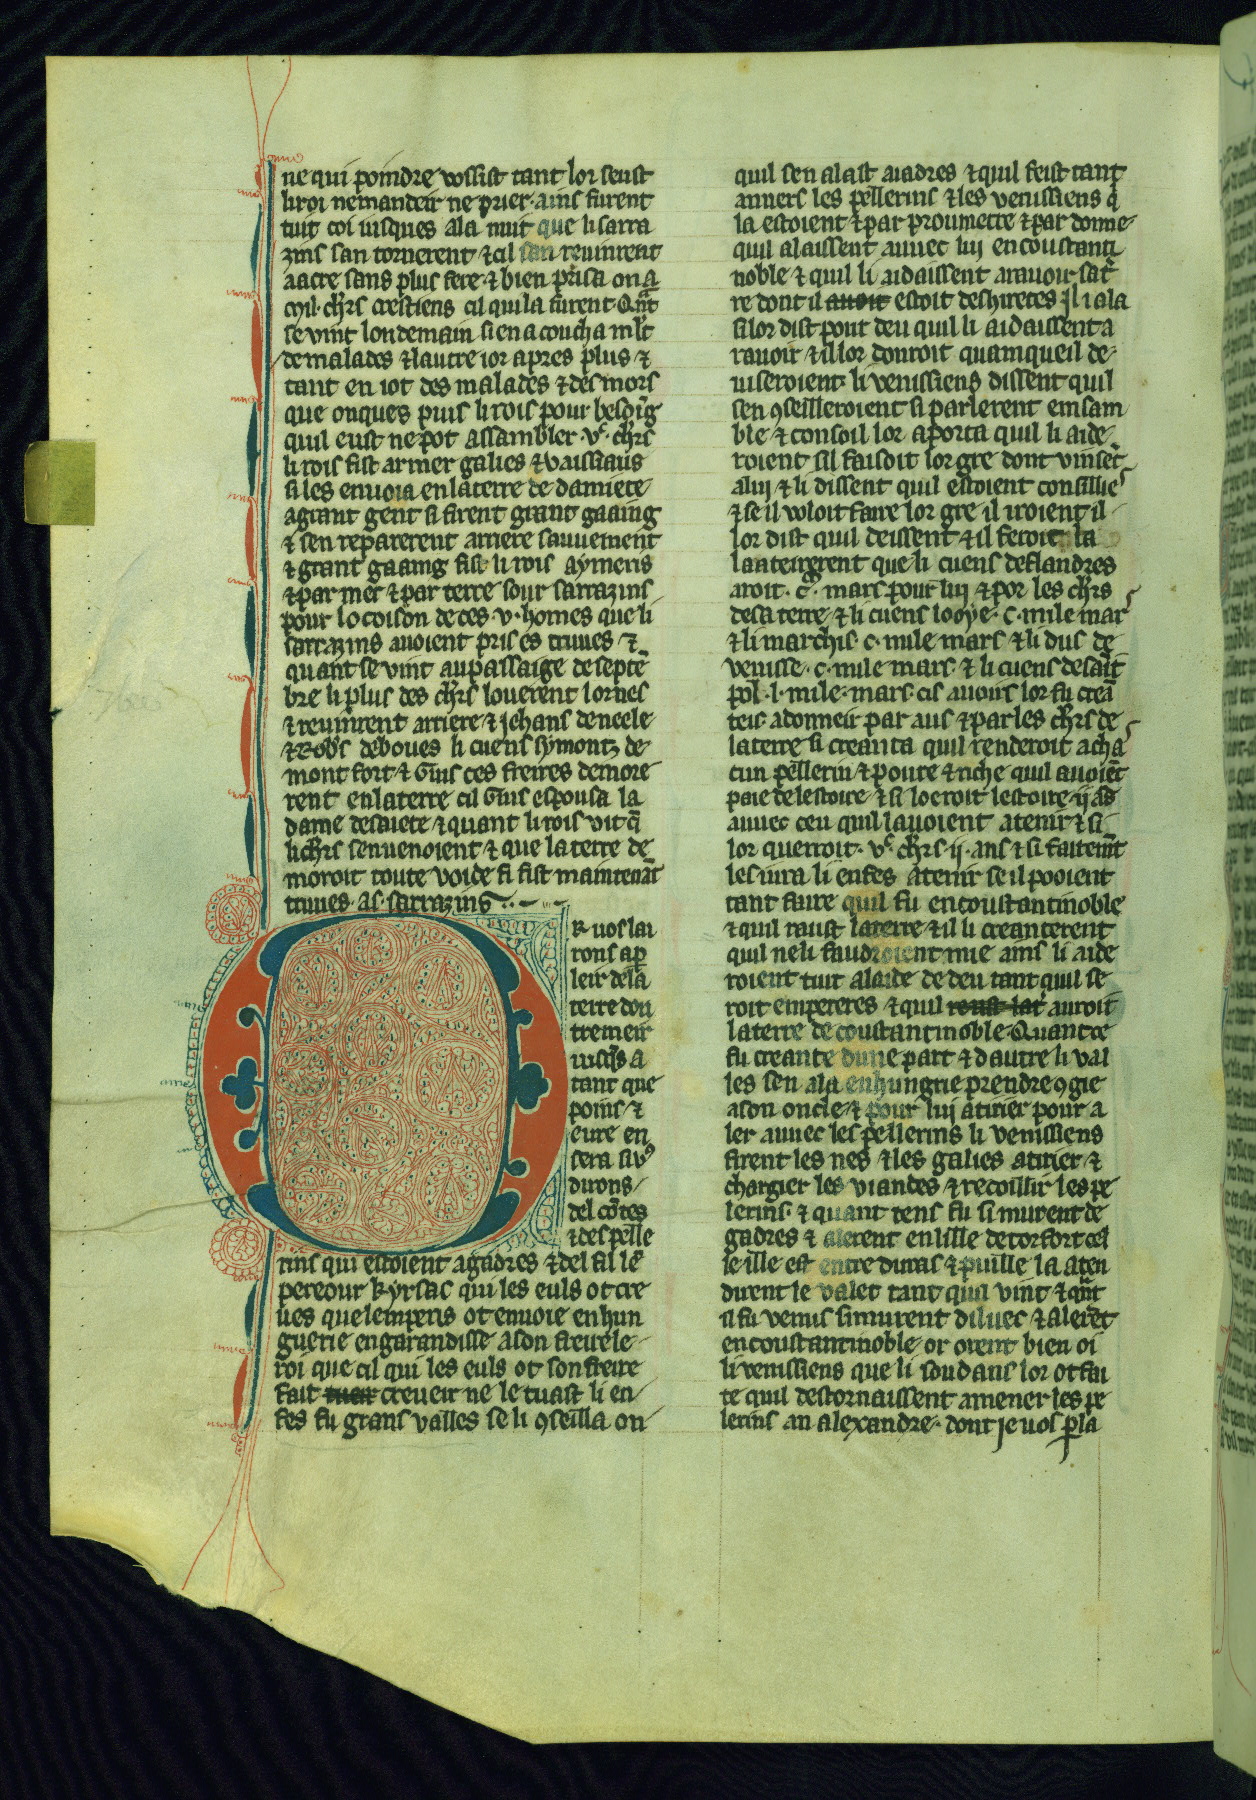 ne qui poindre vossist tant lor seust
li roi nemandeir ne prier· ains furent
tuit coi iusques ala nuit que li sarra
zins san tornerent ⁊ cil san reuinrent
aacre sans plus fere ⁊ bien prisa on a
chrs crestiens cil quila furent Qnt
se vint londemain si en a coucha mlt
demalades ⁊ lautre ior apres plus ⁊
tant en iot des malades ⁊ des mors
que onques puis li rois pour besoing
quil eust ne pot assambler ·vc· chrs
li rois fist armer galies ⁊ vaissiaus
si les enuoia enlaterre de damiete
agrant gent si firent grant gaaing
⁊ sen reparerent arriere sauuement
⁊ grant gaaing fist li rois aymeris
⁊ par mer ⁊ par terre sour sarrazins
pour locoison de ces ·v· homes que li
sarrazins auoient pris es truues ⁊
quant se vint aupassaige de septē
bre li plus des chrs louerent lor nes
⁊ reuinrent arriere ⁊ jehans de neele
⁊ Robs deboues li cuens symontz de
mont fort ⁊ Guis ces freires demore
rent enlaterre cil Guis espousa la
dame desaiete ⁊ quant li rois vit q̄
li chrs senuenoient ⁊ que laterre de
moroit toute voide si fist maintenāt
truues as sarrazins
R uos lai
rons ap
leir dela
terre dou
tremeir
iusqs a
tant que
poins ⁊
eure en
sera si vꝰ
dirons
del cōtes
⁊ des pelle
rins qui estoient agadres ⁊ del fil lē
pereour kyrsac qui les euls ot cre
ues que lemperis ot enuoie en hun
guerie en garandisse ason freire le
roi que cil qui les euls ot son freire
fait tuer creueir ne le tuast li en
fes fu grans valles se li ꝯseilla on
quil sen alast aiadres ⁊ quil feist tant
anuers les pellerins ⁊ les venissiens q̄
la estoient ⁊ par proumettre ⁊ par donne
quil alaissent auuec lui en coustanti
noble ⁊ quil li aidaissent arauoir sa t
re dont il auoit estoit deshiretes Jl i ala
si lor dist pour deu quil li aidaissent a
rauoir ⁊ il lor donroit quamqueil de
uiseroient li venissiens dissent quil
sen ꝯseilleroient si parlerent emsam
ble ⁊ consoil lor aporta quil li aide
roient sil faisoit lor gre dont vinsēt
alui ⁊ li dissent quil estoient consillie
⁊ se il voloit faire lor gre il iroient il
lor dist quil deissent ⁊ il feroit la
la ateirgerent que li cuens deflandres
aroit ·c· mars pour lui ⁊ por les chrs
desa terre ⁊ li cuens looys ·c· mile mar
⁊ li marchis ·c· mile mars ⁊ li dus de
venisse ·c· mile mars ⁊ li cuens desāīt
pol ·l· mile mars cis auoirs lor fu creā
teis adonneir par aus ⁊ par les chrs de
laterre si creanta quil renderoit a cha
cun pellerin ⁊ poure ⁊ riche quil auoiēt
paie de lestoire ⁊ si loeroit lestoire ·ij· as
auuec ceu quil lauoient atenir ⁊ si
lor querroit ·vc· chrs ·ij· ans ⁊ si faitemt
les iura li enfes atenir se il pooient
tant faire quil fu en coustantinoble
⁊ quil raust laterre ⁊ il li creanterent
quil ne li faudroient mie ains li aide
roient tuit alaide de deu tant quil se
roit empereres ⁊ quil auroit
laterre de coustantinoble Quant ce
fu creante dune part ⁊ dautre li val
les sen ala en hungrie prendre ꝯgie
ason oncle ⁊ pour lui atirier pour a
ler auuec les pellerins li venissiens
firent les nes ⁊ les galies atirier ⁊
chargier les viandes ⁊ recoillir les pe
lerins ⁊ quant tens fu si murent de
gadres ⁊ alerent en lille de corfort cel
le ille est entre duras ⁊ puille la aten
dirent le valet tant quil vint ⁊ qnt
il fu venus si murent diluec ⁊ alerēt
en coustantinoble or orent bien oi
li venissiens que li soudans lor ot fai
te quil destornaissent amener les pe
lerins an alexandre dont je uos parla